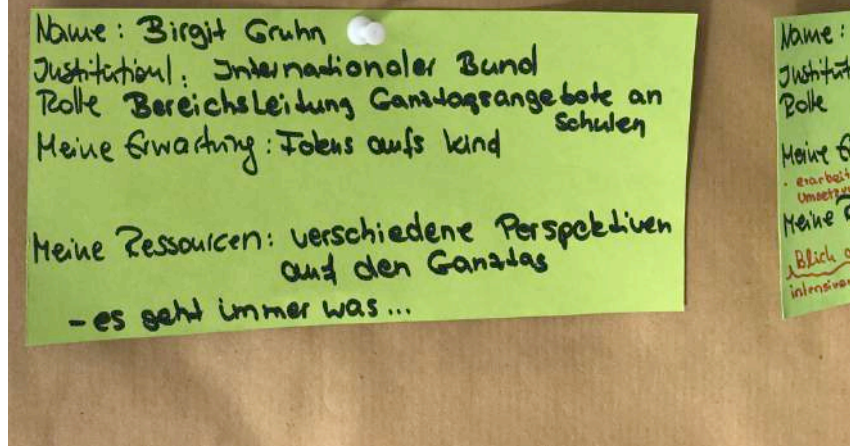 Name: Birgit Gruhn
Institution: Internationaler Bund
Rolle Bereichsleitung Ganztagsangebote an
Schulen
Meine Erwartung: Fokus aufs Kind
Meine Ressourcen: verschiedene Perspektiven
auf den Ganztag
- es geht immer was...
Name:
Rolle
Meine
Meine
Blick